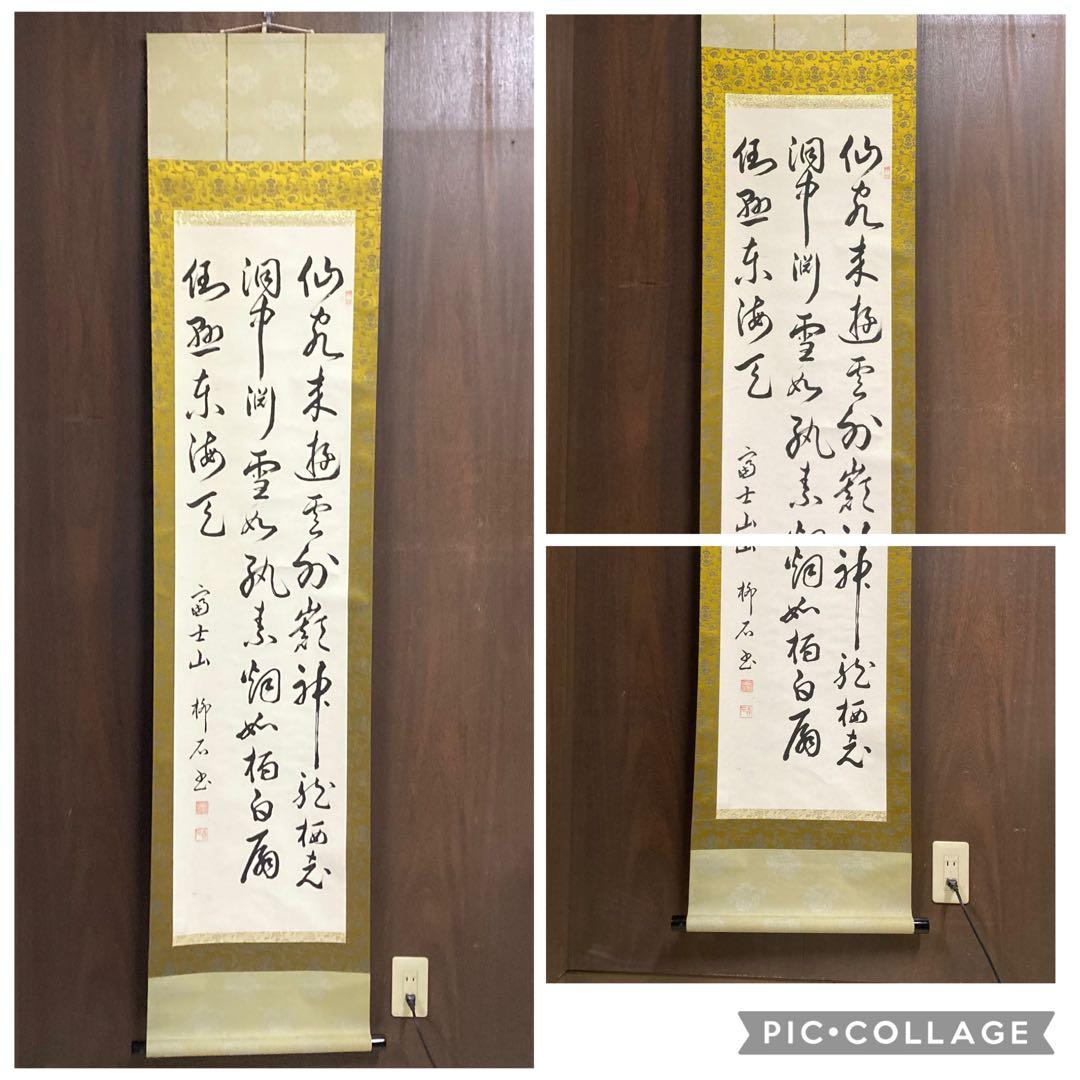 仙客来遊雲外巓神龍栖老
洞中渕雪如紈素烟如柄白扇
倒懸東海天
富士山 柳石書
PIC•COLLAGE